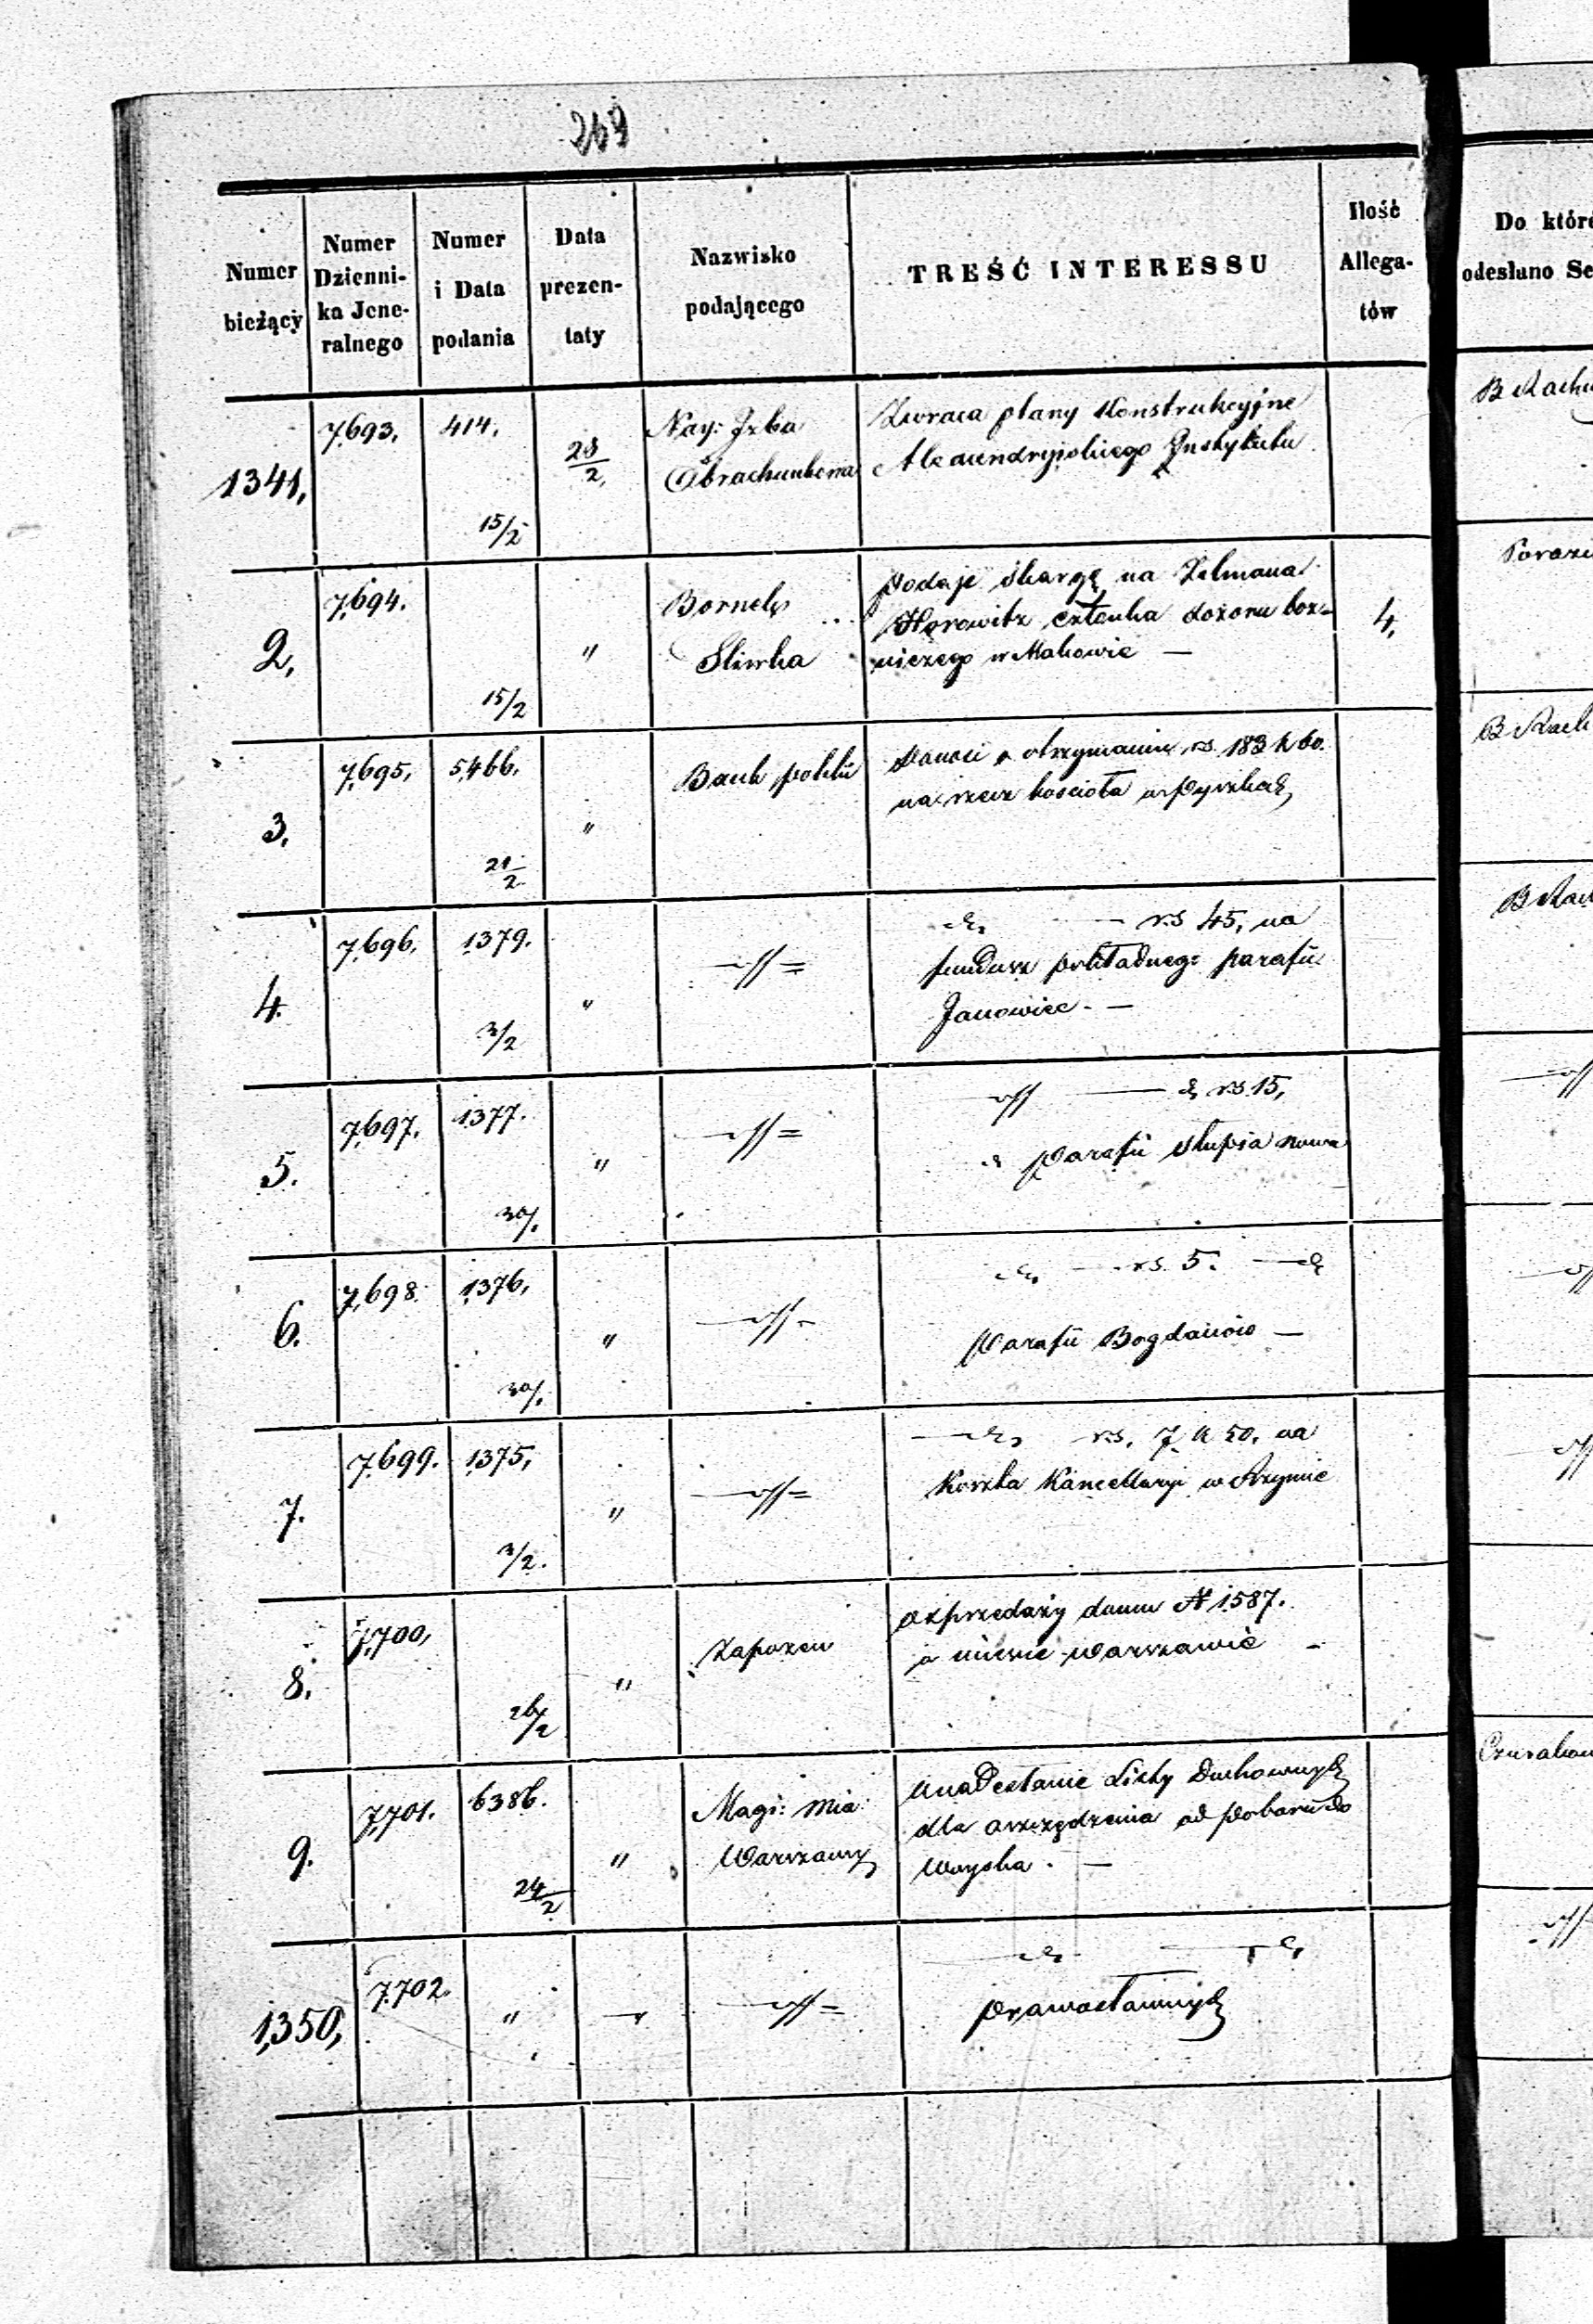 269
Numer bieżący | Numer Dzienni- ka Jene- ralnego | Numer i Data podania | Data prezen- taty | Nazwisko podającego | TREŚĆ INTERESSU | Ilość Allega- tów
Do któr
odesłano Se
1341, | 7,693, | 414, 15/2 | 28/2, | Nay: Izba
Obrachunkowa | Zwraca plany Konstrukcyjne
Alexandryjskiego Instytutu
B Rachu
2, | 7,694. | 15/2 | " | Bornel
Sliwka | podaje skargę na Zelmana
Horowitz członka dozoru boż-
niczego w Makowie — | 4,
3, | 7,695, | 5,466. 21/2 | " | Bank polski | donosi o otrzymaniu rs. 183 k 60.
na rzecz kościoła w Pyzdrach
B Rach
4. | 7,696, | 1379. 3/2 | " | —//= | — rs 45, na
fundusz pokładnego parafii
Janowiec. —
B Rach
5. | 7,697, | 1377. 30/1 | " | —//= | —//— rs. 15,
parafii Słupia nowa
6. | 7,698. | 1376, 30/1 | " | —//= | — rs. 5. —
Parafii Bogdanów —
7. | 7,699. | 1375, 3/2. | " | —//= | — rs. 7 k 50. na
Koszta Kancellaryi w Rzymie
8. | 7,700, | 26/2 | " | Zapozew | o sprzedaży domu N 1587.
w mieście Warszawie —
9. | 7,701. | 6386. 24/2 | " | Magi: Mia:
Warszawy | nadesłanie Listy Duchownych
dla od poboru do
Woyska. —
1,350, | 7,702. | " | —//= | —
prawosławnych